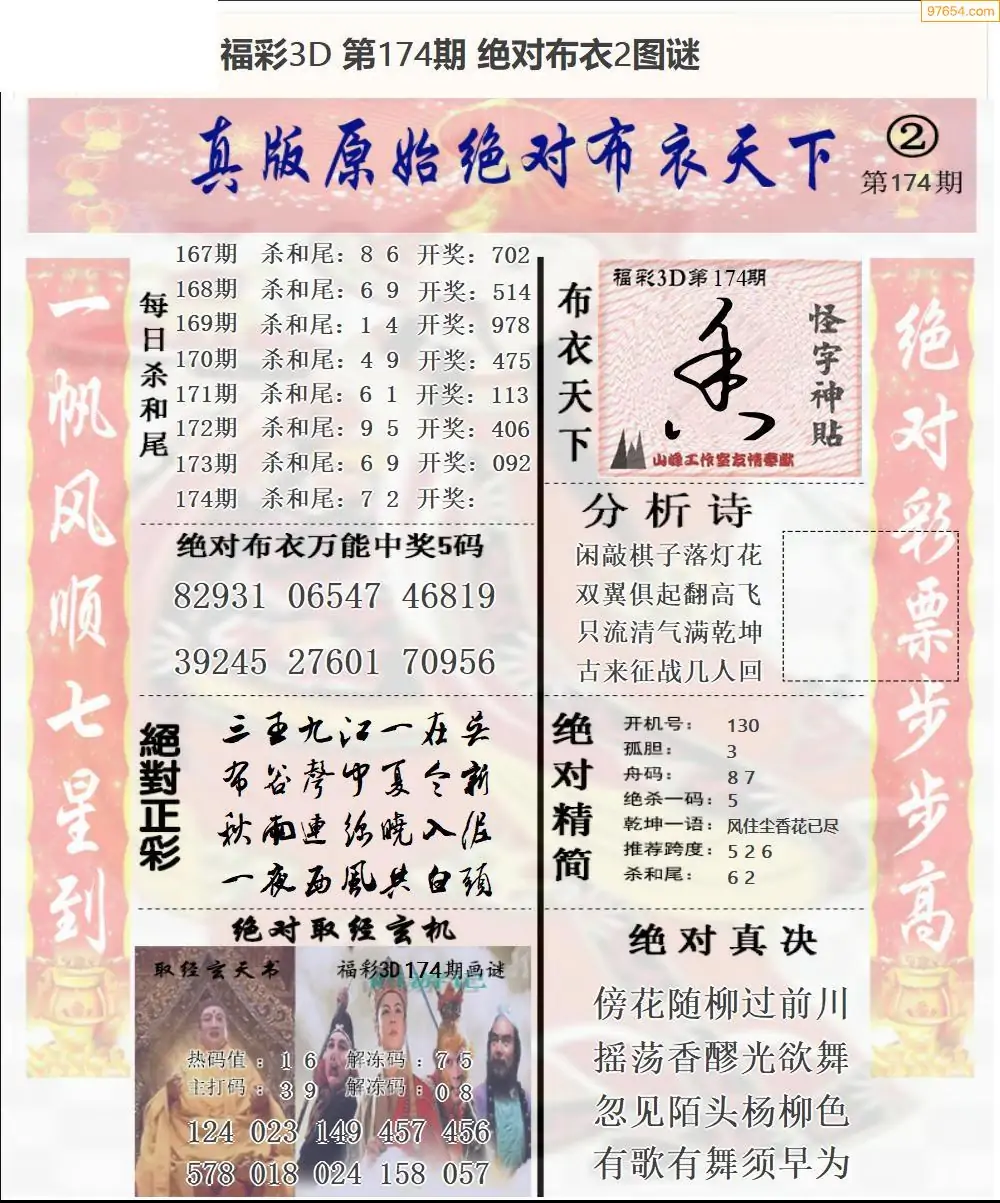 97654.com
福彩3D 第174期 绝对布衣2图谜
真版原始绝对布衣天下
②
第174期
一帆风顺七星到
每日杀和尾
167期 杀和尾：8 6 开奖：702
168期 杀和尾：6 9 开奖：514
169期 杀和尾：1 4 开奖：978
170期 杀和尾：4 9 开奖：475
171期 杀和尾：6 1 开奖：113
172期 杀和尾：9 5 开奖：406
173期 杀和尾：6 9 开奖：092
174期 杀和尾：7 2 开奖：
绝对布衣万能中奖5码
82931 06547 46819
39245 27601 70956
絕對正彩
三至九江一在吴
布谷聲中夏令新
秋雨連綿曉入
一夜西風共白頭
绝对取经玄机
取经玄天书
福彩3D174期画谜
热码值：1 6 解冻码：7 5
主打码：3 9 解冻码：0 8
124 023 149 457 456
578 018 024 158 057
布衣天下
福彩3D第174期
怪字神贴
山峰工作室友情奉献
分析诗
闲敲棋子落灯花
双翼俱起翻高飞
只流清气满乾坤
古来征战几人回
绝对精简
开机号：130
孤胆：3
舟码：8 7
绝杀一码：5
乾坤一语：风住尘香花已尽
推荐跨度：5 2 6
杀和尾：6 2
绝对真决
傍花随柳过前川
摇荡香醪光欲舞
忽见陌头杨柳色
有歌有舞须早为
绝对彩票步步高